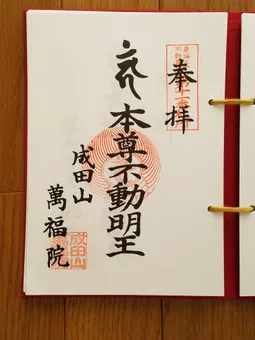 奉拝
本尊不動明王
成田山
萬福院
成田山